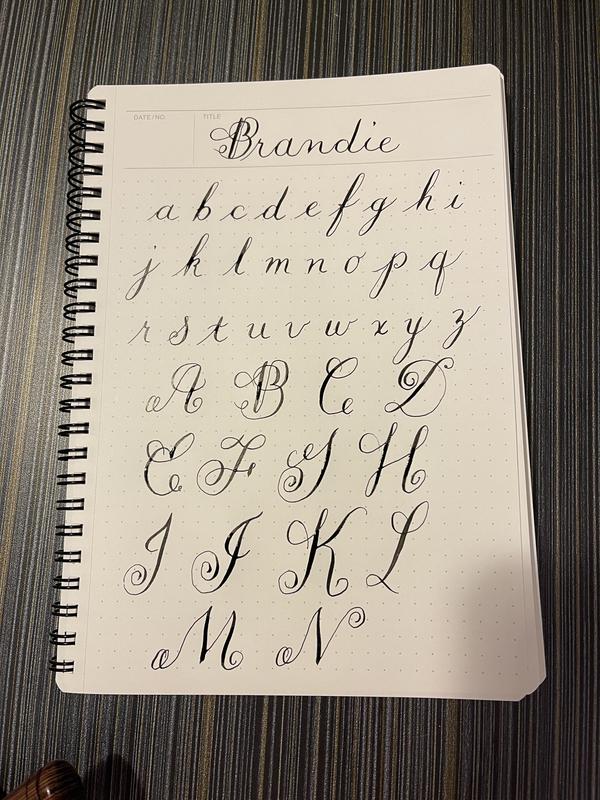 DATE/NO. TITLE
Brandie
a b c d e f g h i
j k l m n o p q
r s t u v w x y z
A B C D
E F G H
I J K L
M N